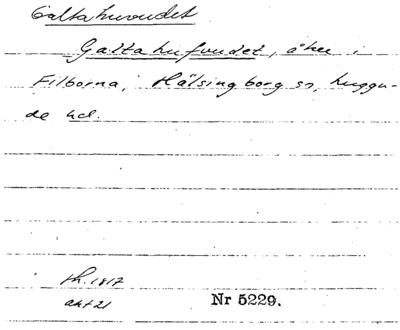 Galtahuvudet
Galtahufvudet, åker i
Filborna, Hälsingborg sn, Luggu-
de hd.
th. 1817
akt 21 Nr 5229.